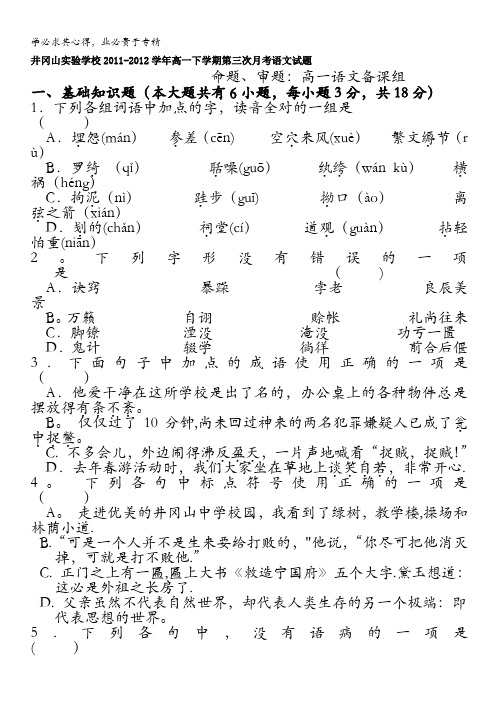 学必求其心得，业必贵于专精
井冈山实验学校2011-2012学年高一下学期第三次月考语文试题
命题、审题：高一语文备课组
一、基础知识题（本大题共有6小题，每小题3分，共18分）
1．下列各组词语中加点的字，读音全对的一组是
（ ）
A．埋怨(mán) 参差（cēn) 空穴来风(xuè） 繁文缛节（r
ù）
B．罗绮 （qǐ） 聒噪(guō） 纨绔（wán kù） 横
祸（héng）
C．拘泥（nì） 跬步（guī) 拗口（ào） 离
弦之箭（xián）
D．刬的(chǎn） 祠堂(cí） 道观（guàn） 拈轻
怕重(niān）
2。下列字形没有错误的一项
是 ( )
A．诀窍 暴躁 李老 良辰美
景
B。万籁 自诩 赊帐 礼尚往来
C．脚镣 湮没 淹没 功亏一匮
D．鬼计 辍学 徜徉 前合后偃
3．下面句子中加点的成语使用正确的一项是
（ ）
A．他爱干净在这所学校是出了名的，办公桌上的各种物件总是
摆放得有条不紊。
B。 仅仅过了10分钟,尚未回过神来的两名犯罪嫌疑人已成了瓮
中捉鳖。
C. 不多会儿，外边闹得沸反盈天，一片声地喊着“捉贼，捉贼!”
D．去年春游活动时，我们大家坐在草地上谈笑自若，非常开心.
4。下列各句中标点符号使用正确的一项是
（ ）
A。 走进优美的井冈山中学校园，我看到了绿树，教学楼,操场和
林荫小道.
B.“可是一个人并不是生来要给打败的，"他说，“你尽可把他消灭
掉，可就是打不败他.”
C. 正门之上有一匾,匾上大书《敕造宁国府》五个大字.黛玉想道：
这必是外祖之长房了.
D. 父亲虽然不代表自然世界，却代表人类生存的另一个极端：即
代表思想的世界。
5．下列各句中，没有语病的一项是
( ）